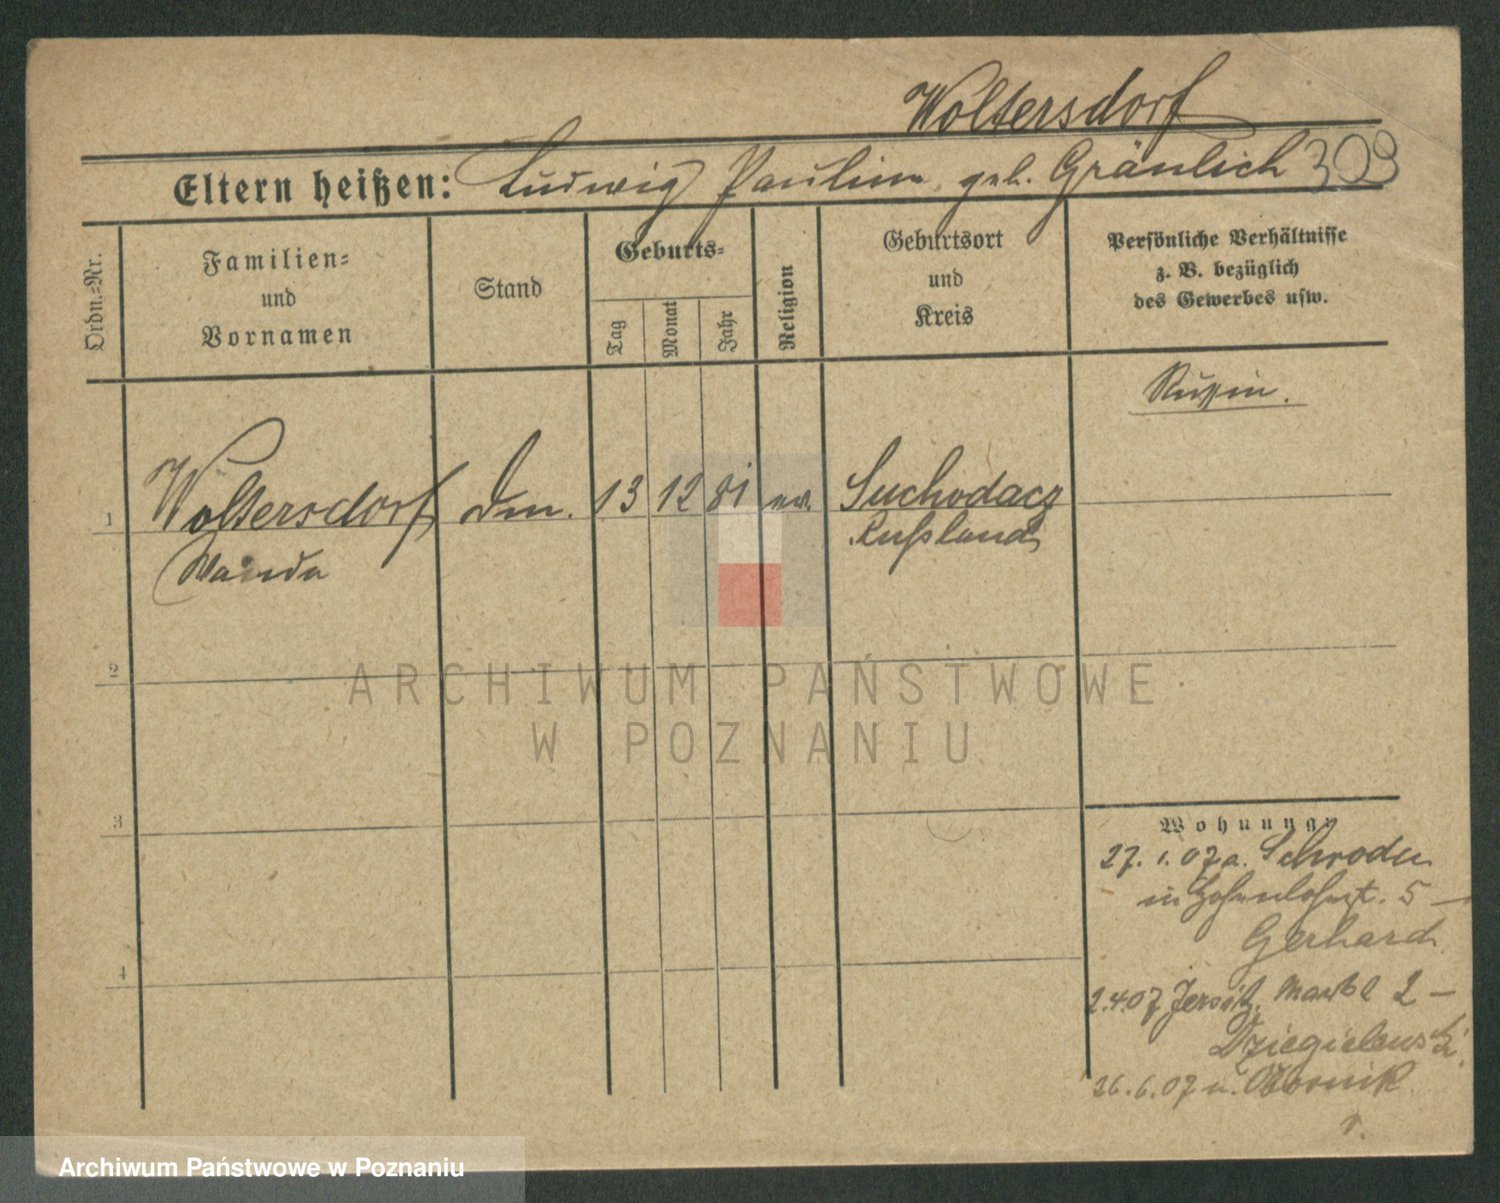 Woltersdorf
Eltern heißen: Ludwig Pauline geb. Gränlich 309
Ordn.-Nr.
Familien-
und
Vornamen
Stand
Geburts-
Tag
Monat
Jahr
Religion
Geburtsort
und
Kreis
Persönliche Verhältnisse
z. B. bezüglich
des Gewerbes usw.
Russin.
1
Woltersdorf
Wanda
13 12 81 ev.
Suchodacz
Russland
2
3
4
Wohnung:
27. 1. 07 a. Schroda
in Hohenlohestr. 5 —
Gerhard
2.4.07 Jersitz. Markt 2 —
Dziegielewski
26.6.07 n. Obornik
ARCHIWUM PAŃSTWOWE
W POZNANIU
Archiwum Państwowe w Poznaniu